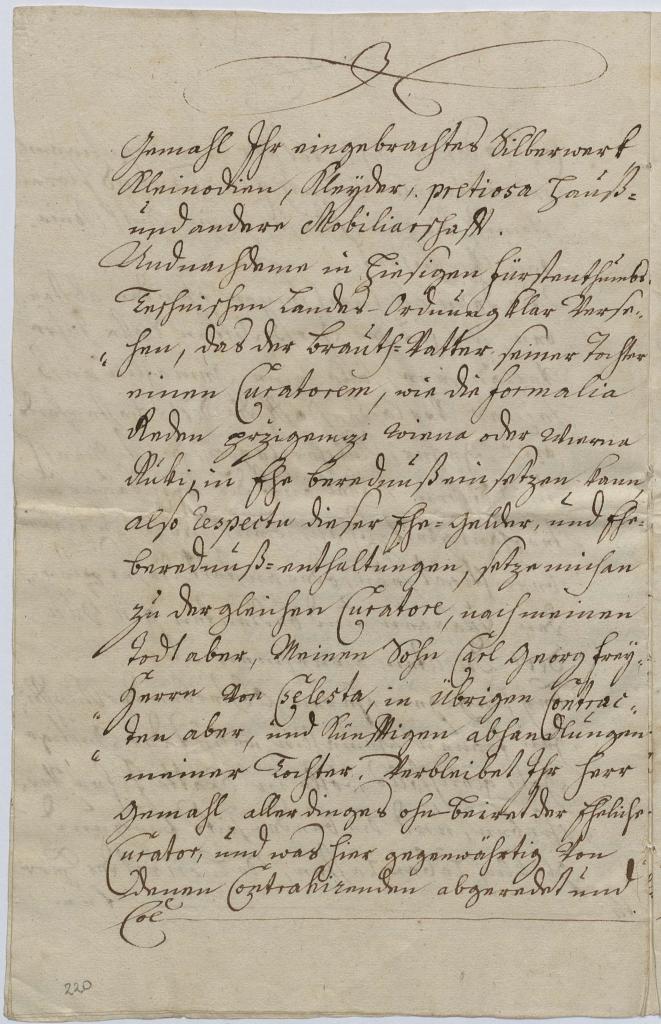 Gemahl Ihr eingebrachtes Silberwerk
Kleinodien, Kleyder, pretiosa Hauß-
und andere Mobiliarschafft.
Und nachdeme in hiesigen Fürstenthumbs
Teschnischen Landes-Ordnung klar Verse-
hen, das der Brauth-Vatter seiner Tochter
einen Curatorem, wie die formalia
Reden przigemzi wiena oder Wierna
Ruki, in Ehe berednuß einsetzen kann
also respectu dieser Ehe-Gelder, und Ehe-
berednuß-enthaltungen, setze mich an
zu dergleichen Curatore, nach meinen
Todt aber, Meinen Sohn Carl Georg Frey-
Herrn Von Celesta, in Übrigen Contrac-
ten aber, und Künfftigen abhandlungen
meiner Tochter. Verbleibet Ihr Herr
Gemahl allerdinges ohn-beirret der Eheliche
Curator, und was hier gegenwährtig Von
Denen Contrahirenden abgeredet und
220